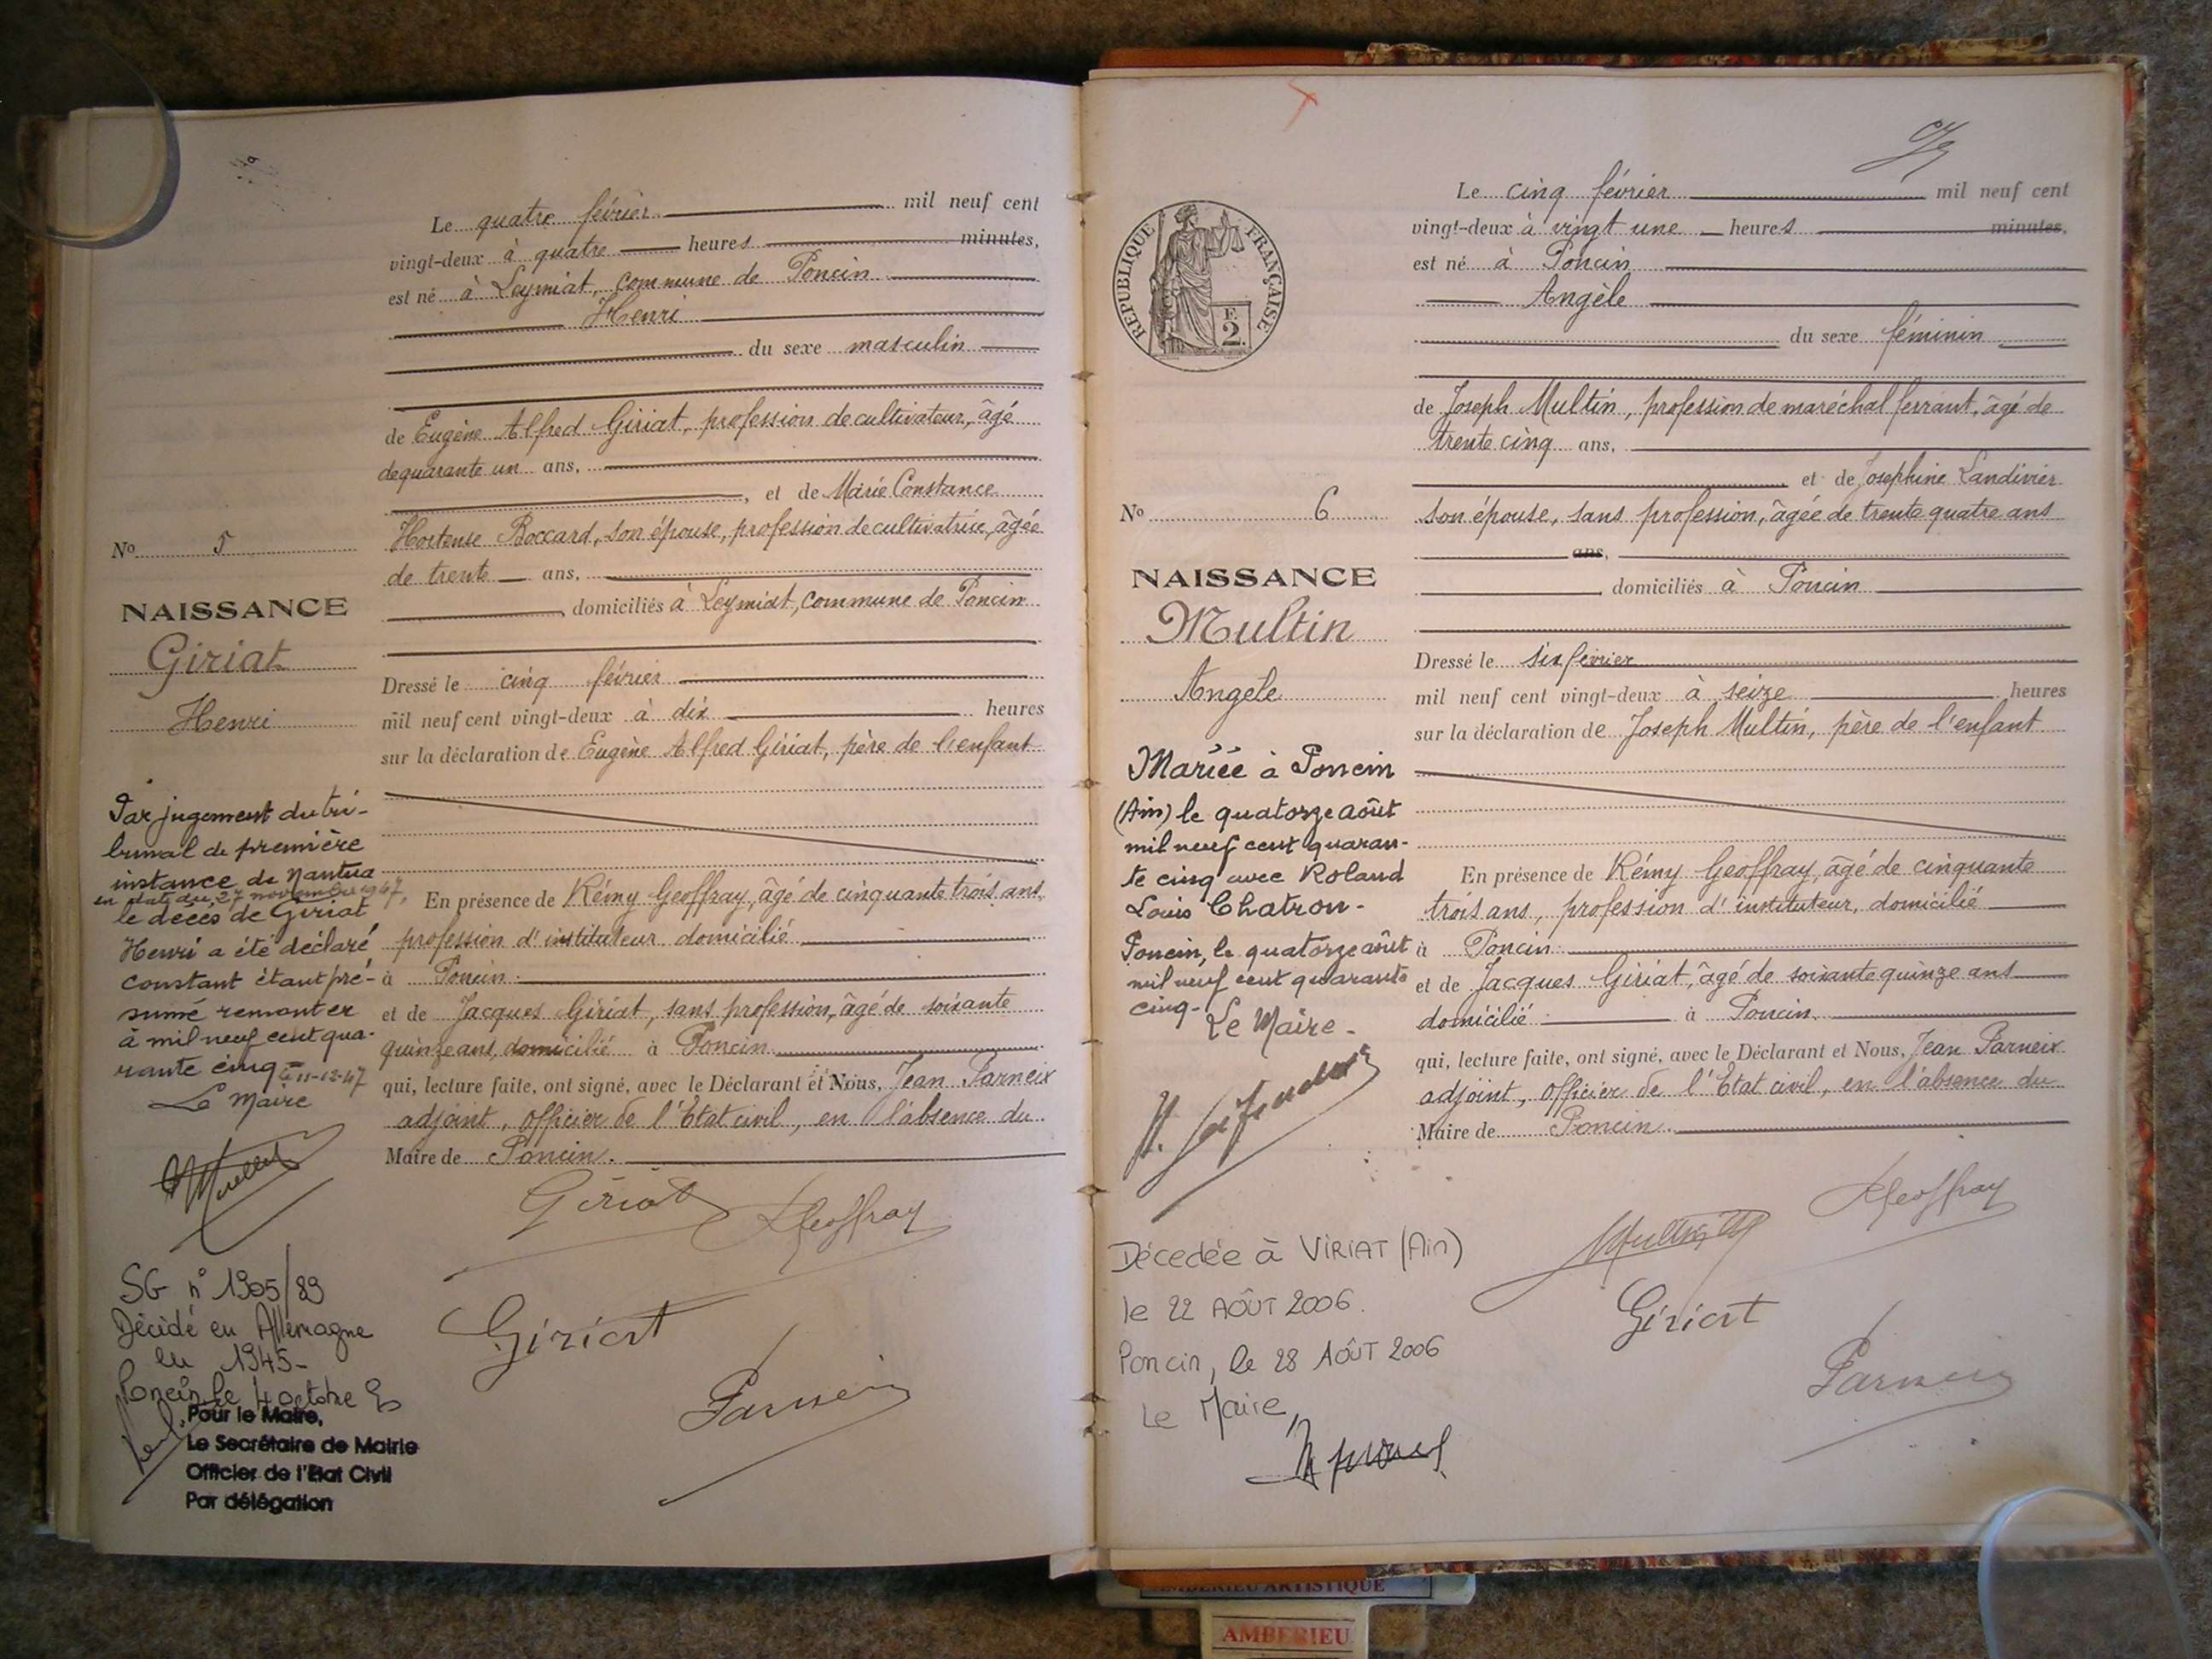 Le quatre février mil neuf cent
vingt-deux à quatre heures minutes,
est né à Leymiat, commune de Poncin
Henri
du sexe masculin
de Eugène Alfred Giriat, profession de cultivateur, âgé
de quarante un ans,
, et de Marie Constance
Hortense Boccard, son épouse, profession de cultivatrice, âgée
de trente ans,
domiciliés à Leymiat, commune de Poncin
Dressé le cinq février
mil neuf cent vingt-deux à dix heures
sur la déclaration de Eugène Alfred Giriat, père de l'enfant
En présence de Rémy Geoffray, âgé de cinquante trois ans,
profession d'instituteur domicilié
à Poncin
et de Jacques Giriat, sans profession, âgé de soixante
quinze ans, domicilié à Poncin
qui, lecture faite, ont signé, avec le Déclarant et Nous, Jean Parneix
adjoint, officier de l'Etat civil, en l'absence du
Maire de Poncin.
Giriat
RGeoffray
Giriat
Parneix
No 5
NAISSANCE
Giriat
Henri
Par jugement du tri-
bunal de première
instance de Nantua
en date du 27 novembre 1947,
le décès de Giriat
Henri a été déclaré
constant étant pré-
sumé remonter
à mil neuf cent qua-
rante cinq 11-12-47
Le Maire
SG n° 1905/89
Décidé en Allemagne
en 1945-
Poncin le 4 octobre
Pour le Maire,
Le Secrétaire de Mairie
Officier de l'Etat Civil
Par délégation
REPUBLIQUE FRANÇAISE
F.
2.
Le cinq février mil neuf cent
vingt-deux à vingt une heures minutes,
est né à Poncin
Angèle
du sexe féminin
de Joseph Multin, profession de maréchal ferrant, âgé de
trente cinq ans,
et de Josephine Landivier
son épouse, sans profession, âgée de trente quatre ans
ans,
domiciliés à Poncin
Dressé le six février
mil neuf cent vingt-deux à seize heures
sur la déclaration de Joseph Multin, père de l'enfant
En présence de Rémy Geoffray, âgé de cinquante
trois ans, profession d'instituteur, domicilié
à Poncin
et de Jacques Giriat, âgé de soixante quinze ans
domicilié à Poncin
qui, lecture faite, ont signé, avec le Déclarant et Nous, Jean Parneix
adjoint, officier de l'Etat civil, en l'absence du
Maire de Poncin.
RGeoffray
Multin
Giriat
Parneix
No 6
NAISSANCE
Multin
Angele
Mariée à Poncin
(Ain) le quatorze août
mil neuf cent quaran-
te cinq avec Roland
Louis Chatron-
Poncin, le quatorze août
mil neuf cent quarante
cinq-
Le Maire-
Décedée à VIRIAT (Ain)
le 22 AOÛT 2006.
Poncin, le 28 AOÛT 2006
Le Maire,
AMBERIEU ARTISTIQUE
AMBERIEU